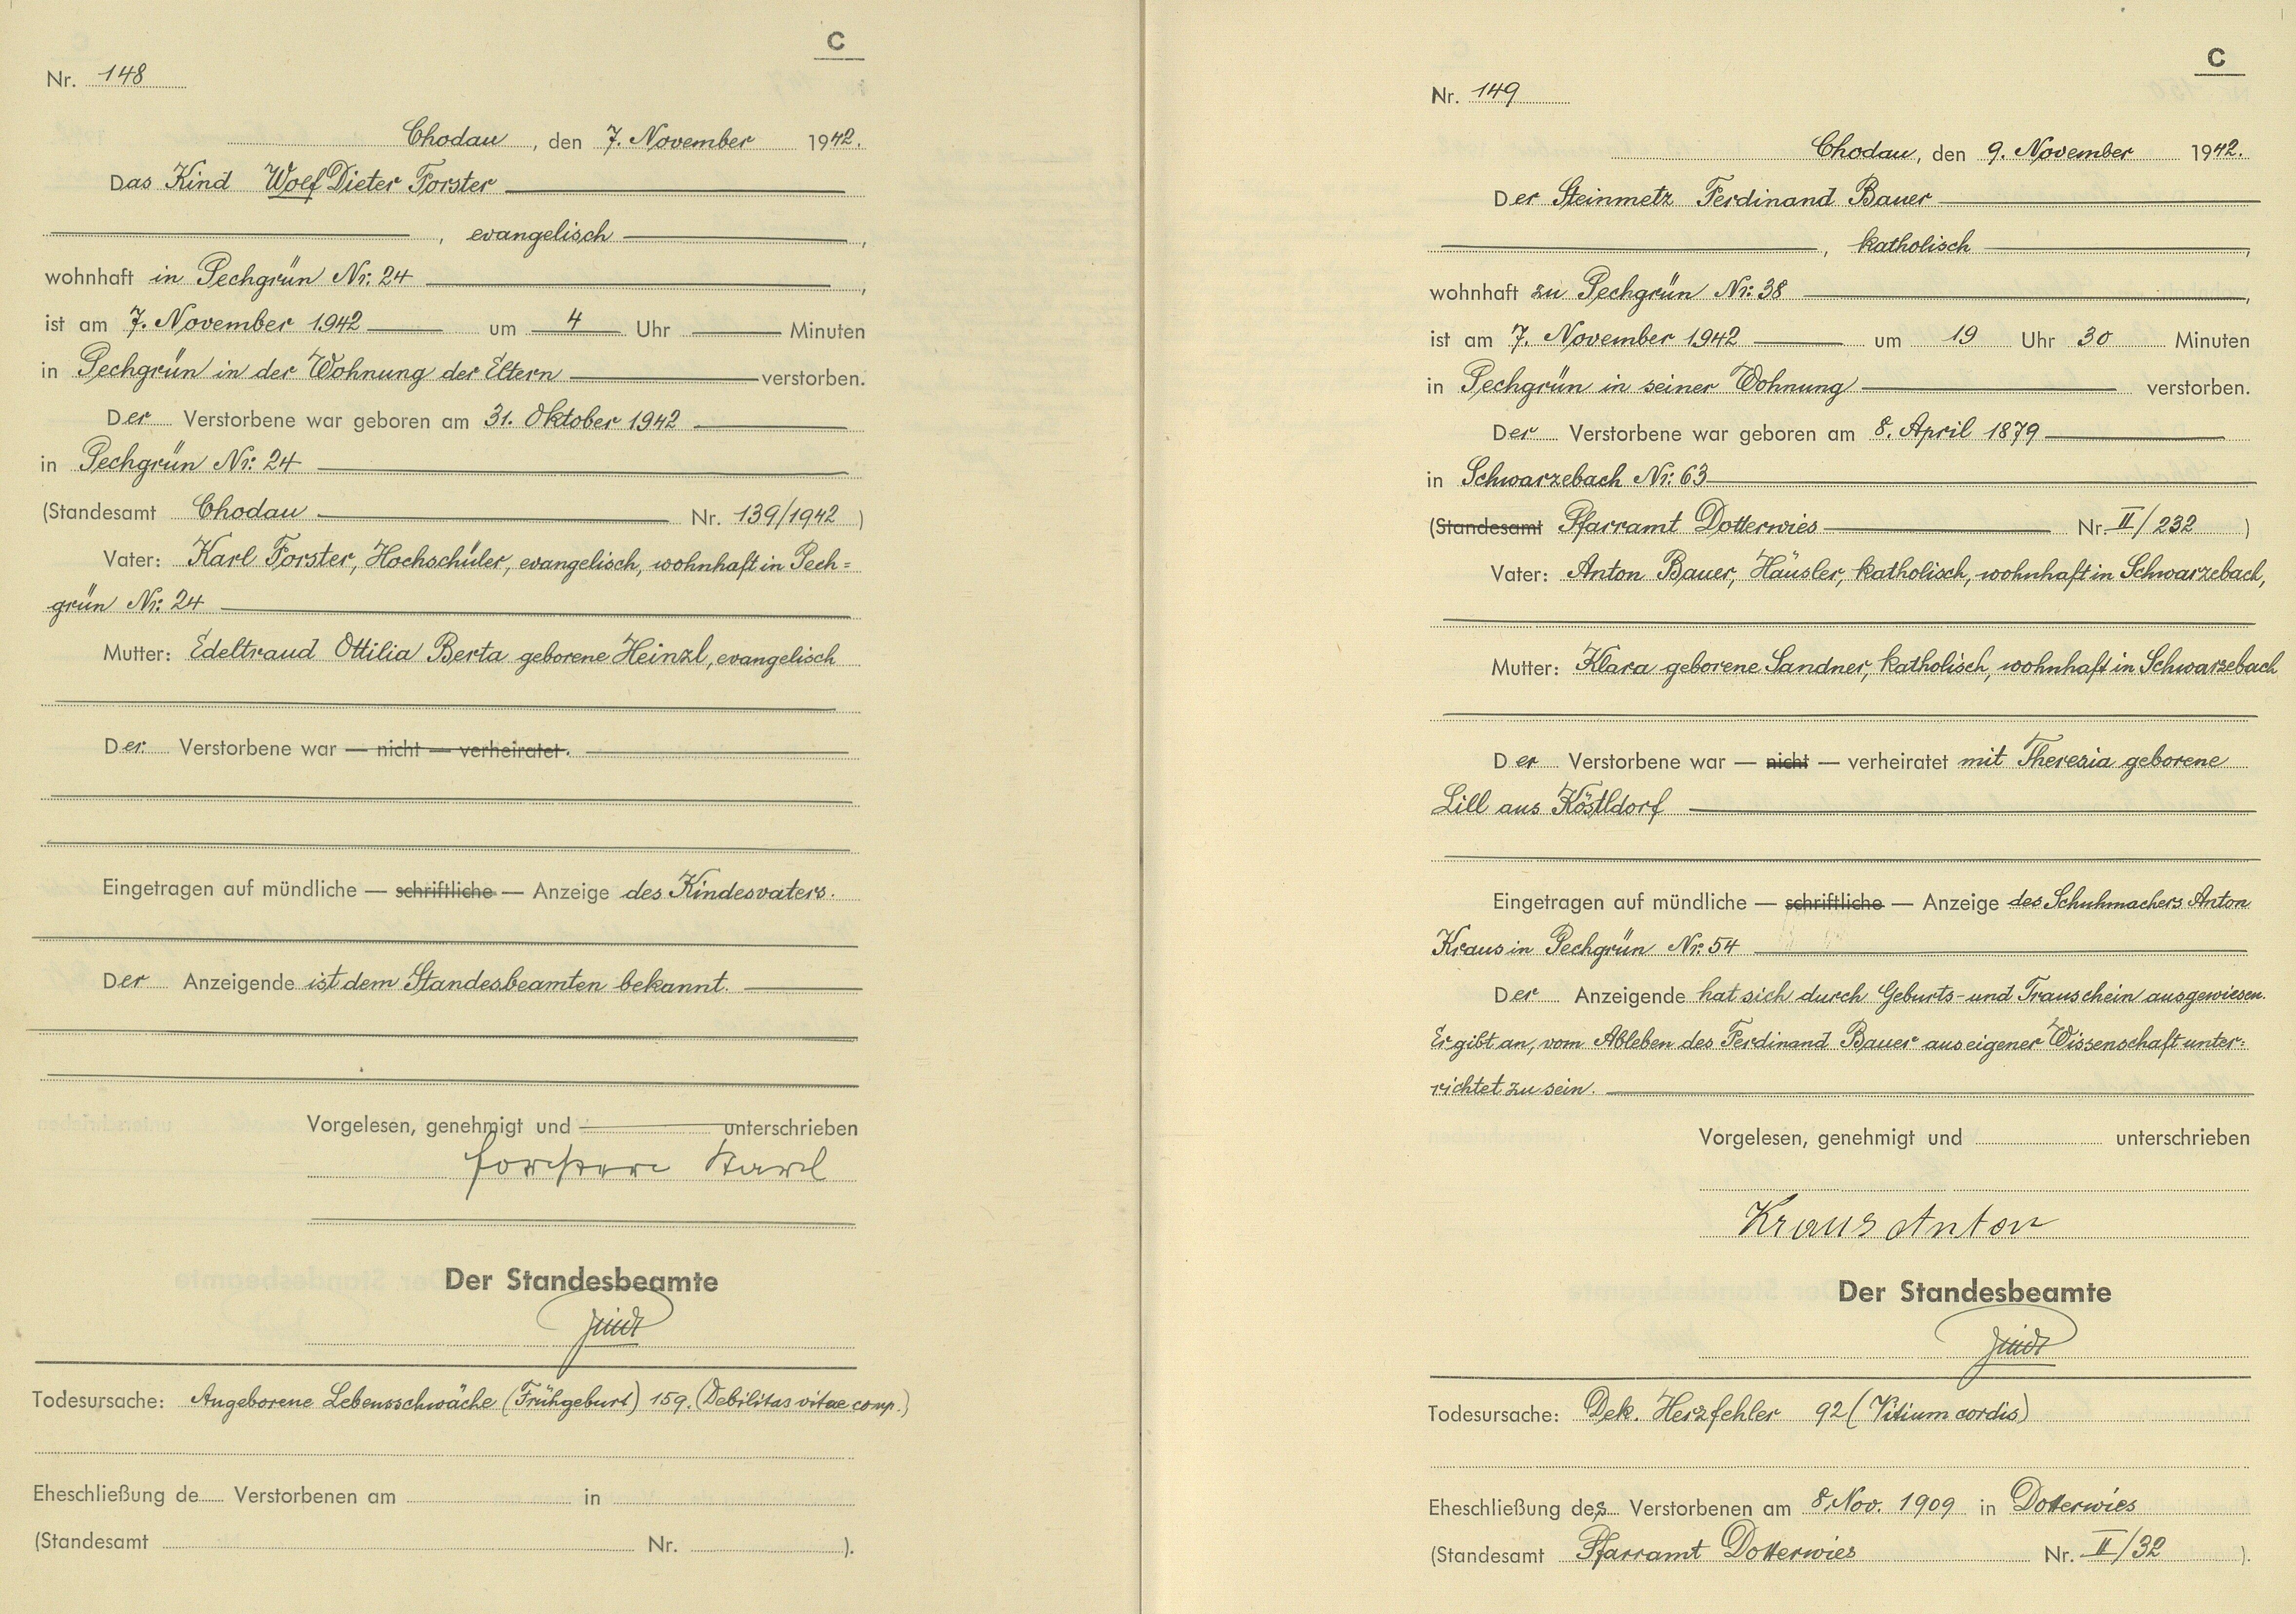 C
Nr. 148
Chodau, den 7. November 1942.
Das Kind Wolf Dieter Forster
, evangelisch,
wohnhaft in Pechgrün Nr: 24,
ist am 7. November 1942 um 4 Uhr Minuten
in Pechgrün in der Wohnung der Eltern verstorben.
Der Verstorbene war geboren am 31. Oktober 1942
in Pechgrün Nr: 24
(Standesamt Chodau Nr. 139/1942)
Vater: Karl Forster, Hochschüler, evangelisch, wohnhaft in Pech=
grün Nr: 24
Mutter: Edeltraud Ottilia Berta geborene Heinzl, evangelisch
Der Verstorbene war — nicht — verheiratet.
Eingetragen auf mündliche — schriftliche — Anzeige des Kindesvaters.
Der Anzeigende ist dem Standesbeamten bekannt.
Vorgelesen, genehmigt und unterschrieben
Forster Karl
Der Standesbeamte
Todesursache: Angeborene Lebensschwäche (Frühgeburt) 159. (Debilitas vitae comp.)
Eheschließung de Verstorbenen am in
(Standesamt Nr. ).
C
Nr. 149
Chodau, den 9. November 1942.
Der Steinmetz Ferdinand Bauer
, katholisch,
wohnhaft zu Pechgrün Nr: 38,
ist am 7. November 1942 um 19 Uhr 30 Minuten
in Pechgrün in seiner Wohnung verstorben.
Der Verstorbene war geboren am 8. April 1879
in Schwarzebach Nr: 63
(Standesamt Pfarramt Dotterwies Nr. II/232)
Vater: Anton Bauer, Häusler, katholisch, wohnhaft in Schwarzebach,
Mutter: Klara geborene Sandner, katholisch, wohnhaft in Schwarzebach
Der Verstorbene war — nicht — verheiratet mit Theresia geborene
Lill aus Köstldorf
Eingetragen auf mündliche — schriftliche — Anzeige des Schuhmachers Anton
Kraus in Pechgrün Nr: 54
Der Anzeigende hat sich durch Geburts- und Trauschein ausgewiesen.
Er gibt an, vom Ableben des Ferdinand Bauer aus eigener Wissenschaft unter=
richtet zu sein.
Vorgelesen, genehmigt und unterschrieben
Kraus Anton
Der Standesbeamte
Todesursache: Dek. Herzfehler 92 (Vitium cordis)
Eheschließung des Verstorbenen am 8. Nov. 1909 in Dotterwies
(Standesamt Pfarramt Dotterwies Nr. II/32).